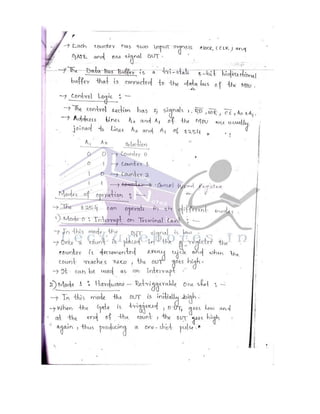 → Each counter has two input signals CLOCK (CLK) and
GATE and one signal OUT.
→ The Data Bus Buffer is a tri-state 8-bit bidirectional
buffer that is connected to the data bus of the MPU.
→ Control Logic :-
→ The control section has 5 signals : RD, WR, CS, A0 & A1.
→ Address lines A0 and A1 of the MPU are usually
joined to lines A0 and A1 of 8254.
A1 A0 Selection
0 0 → Counter 0
0 1 → Counter 1
1 0 → Counter 2
1 1 → Control Word Register
Modes of operation :-
→ The 8254 can operate in six different modes.
1) Mode 0 : Interrupt on Terminal Count :-
→ In this mode, the OUT signal is low
→ Once a count is placed in the register the
counter is decremented every cycle and when the
count reaches zero, the OUT goes high.
→ It can be used as an interrupt.
2) Mode 1 : Hardware - Retriggerable One shot :-
→ In this mode the OUT is initially high.
→ When the Gate is triggered, OUT goes low and
at the end of the count, the OUT goes high
again, thus producing a one-shot pulse.